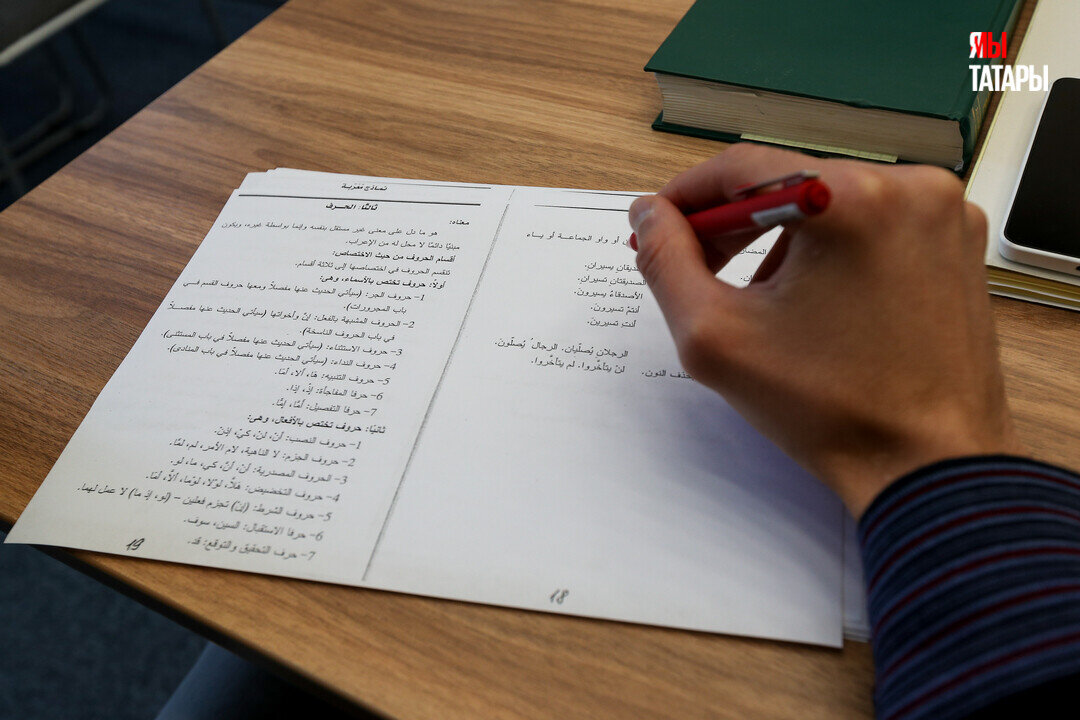 Я/МЫ
ТАТАРЫ
نماذج نظرية
ثالثا: الحرف
معناه:
هو ما دل على معنى غير مستقل بنفسه وإنما بواسطة غيره، ويكون
مبنيًا دائمًا لا محل له من الإعراب.
أقسام الحروف من حيث الاختصاص:
تنقسم الحروف في اختصاصها إلى ثلاثة أقسام.
أولاً: حروف تختص بالأسماء، وهي:
1- حروف الجر: (سيأتي الحديث عنها مفصلاً ومعها حروف القسم في
باب المجرورات).
2- الحروف المشبهة بالفعل: إنّ وأخواتها (سيأتي الحديث عنها مفصلاً
في باب الحروف الناسخة).
3- حروف الاستثناء: (سيأتي الحديث عنها مفصلاً في باب المستثنى).
4- حروف النداء: (سيأتي الحديث عنها مفصلاً في باب المنادى).
5- حروف التنبيه: هَا، ألا، أمَا.
6- حرفا المفاجأة: إذْ، إذا.
7- حرفا التفصيل: أمّا، إمّا.
ثانيًا: حروف تختص بالأفعال، وهي:
1- حروف النصب: أنْ، لنْ، كيْ، إذنْ.
2- حروف الجزم: لا الناهية، لام الأمر، لم، لمّا.
3- الحروف المصدرية: أنْ، أنّ، كي، ما، لو.
4- حروف التخصيص: هلّا، لوْلا، لوْما، ألّا، ألَا.
5- حروف الشرط: (إنْ) تجزم فعلين – (لو، إذ ما) لا عمل لهما.
6- حرفا الاستقبال: السين، سوف.
7- حرف التحقيق والتوقع: قد.
19
أو واو الجماعة أو يـاء
يسيران.
الصديقتان تسيران.
الأصدقاءُ يسيرون.
أنتمْ تسيرون.
أنتِ تسيرينَ.
الرجلان يُصلّيان. الرجال يُصلّون.
النون. لنْ يتأخّروا. لم يتأخّروا.
18